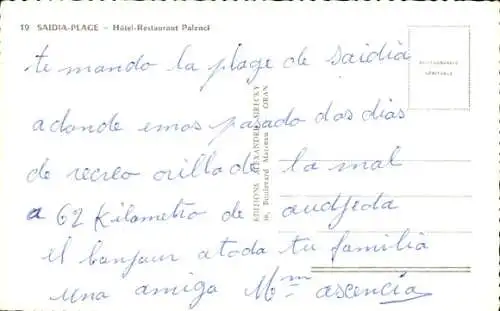 19 SAIDIA-PLAGE - Hôtel-Restaurant Palenci
te mando la plage de Saidia
adonde emos pasado dos dias
de recreo orilla de la mal
a 62 Kilometro de audjeda
il banjour a toda tu familia
una amiga Mme ascencia
EDITIONS ALEXANDRE SIRECKY
Boulevard ORAN